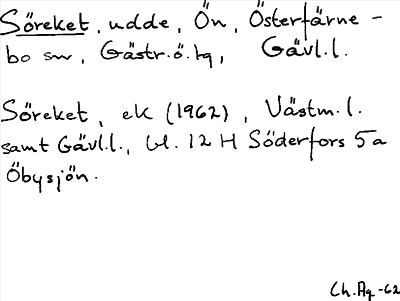 Söreket, udde, Ön, Österfärne-
bo sn, Gästr.ö.tg, Gävl.l.
Söreket, ek (1962), Västm.l.
samt Gävl.l., bl. 12 H Söderfors 5a
Öbysjön.
Ch.Ag -62